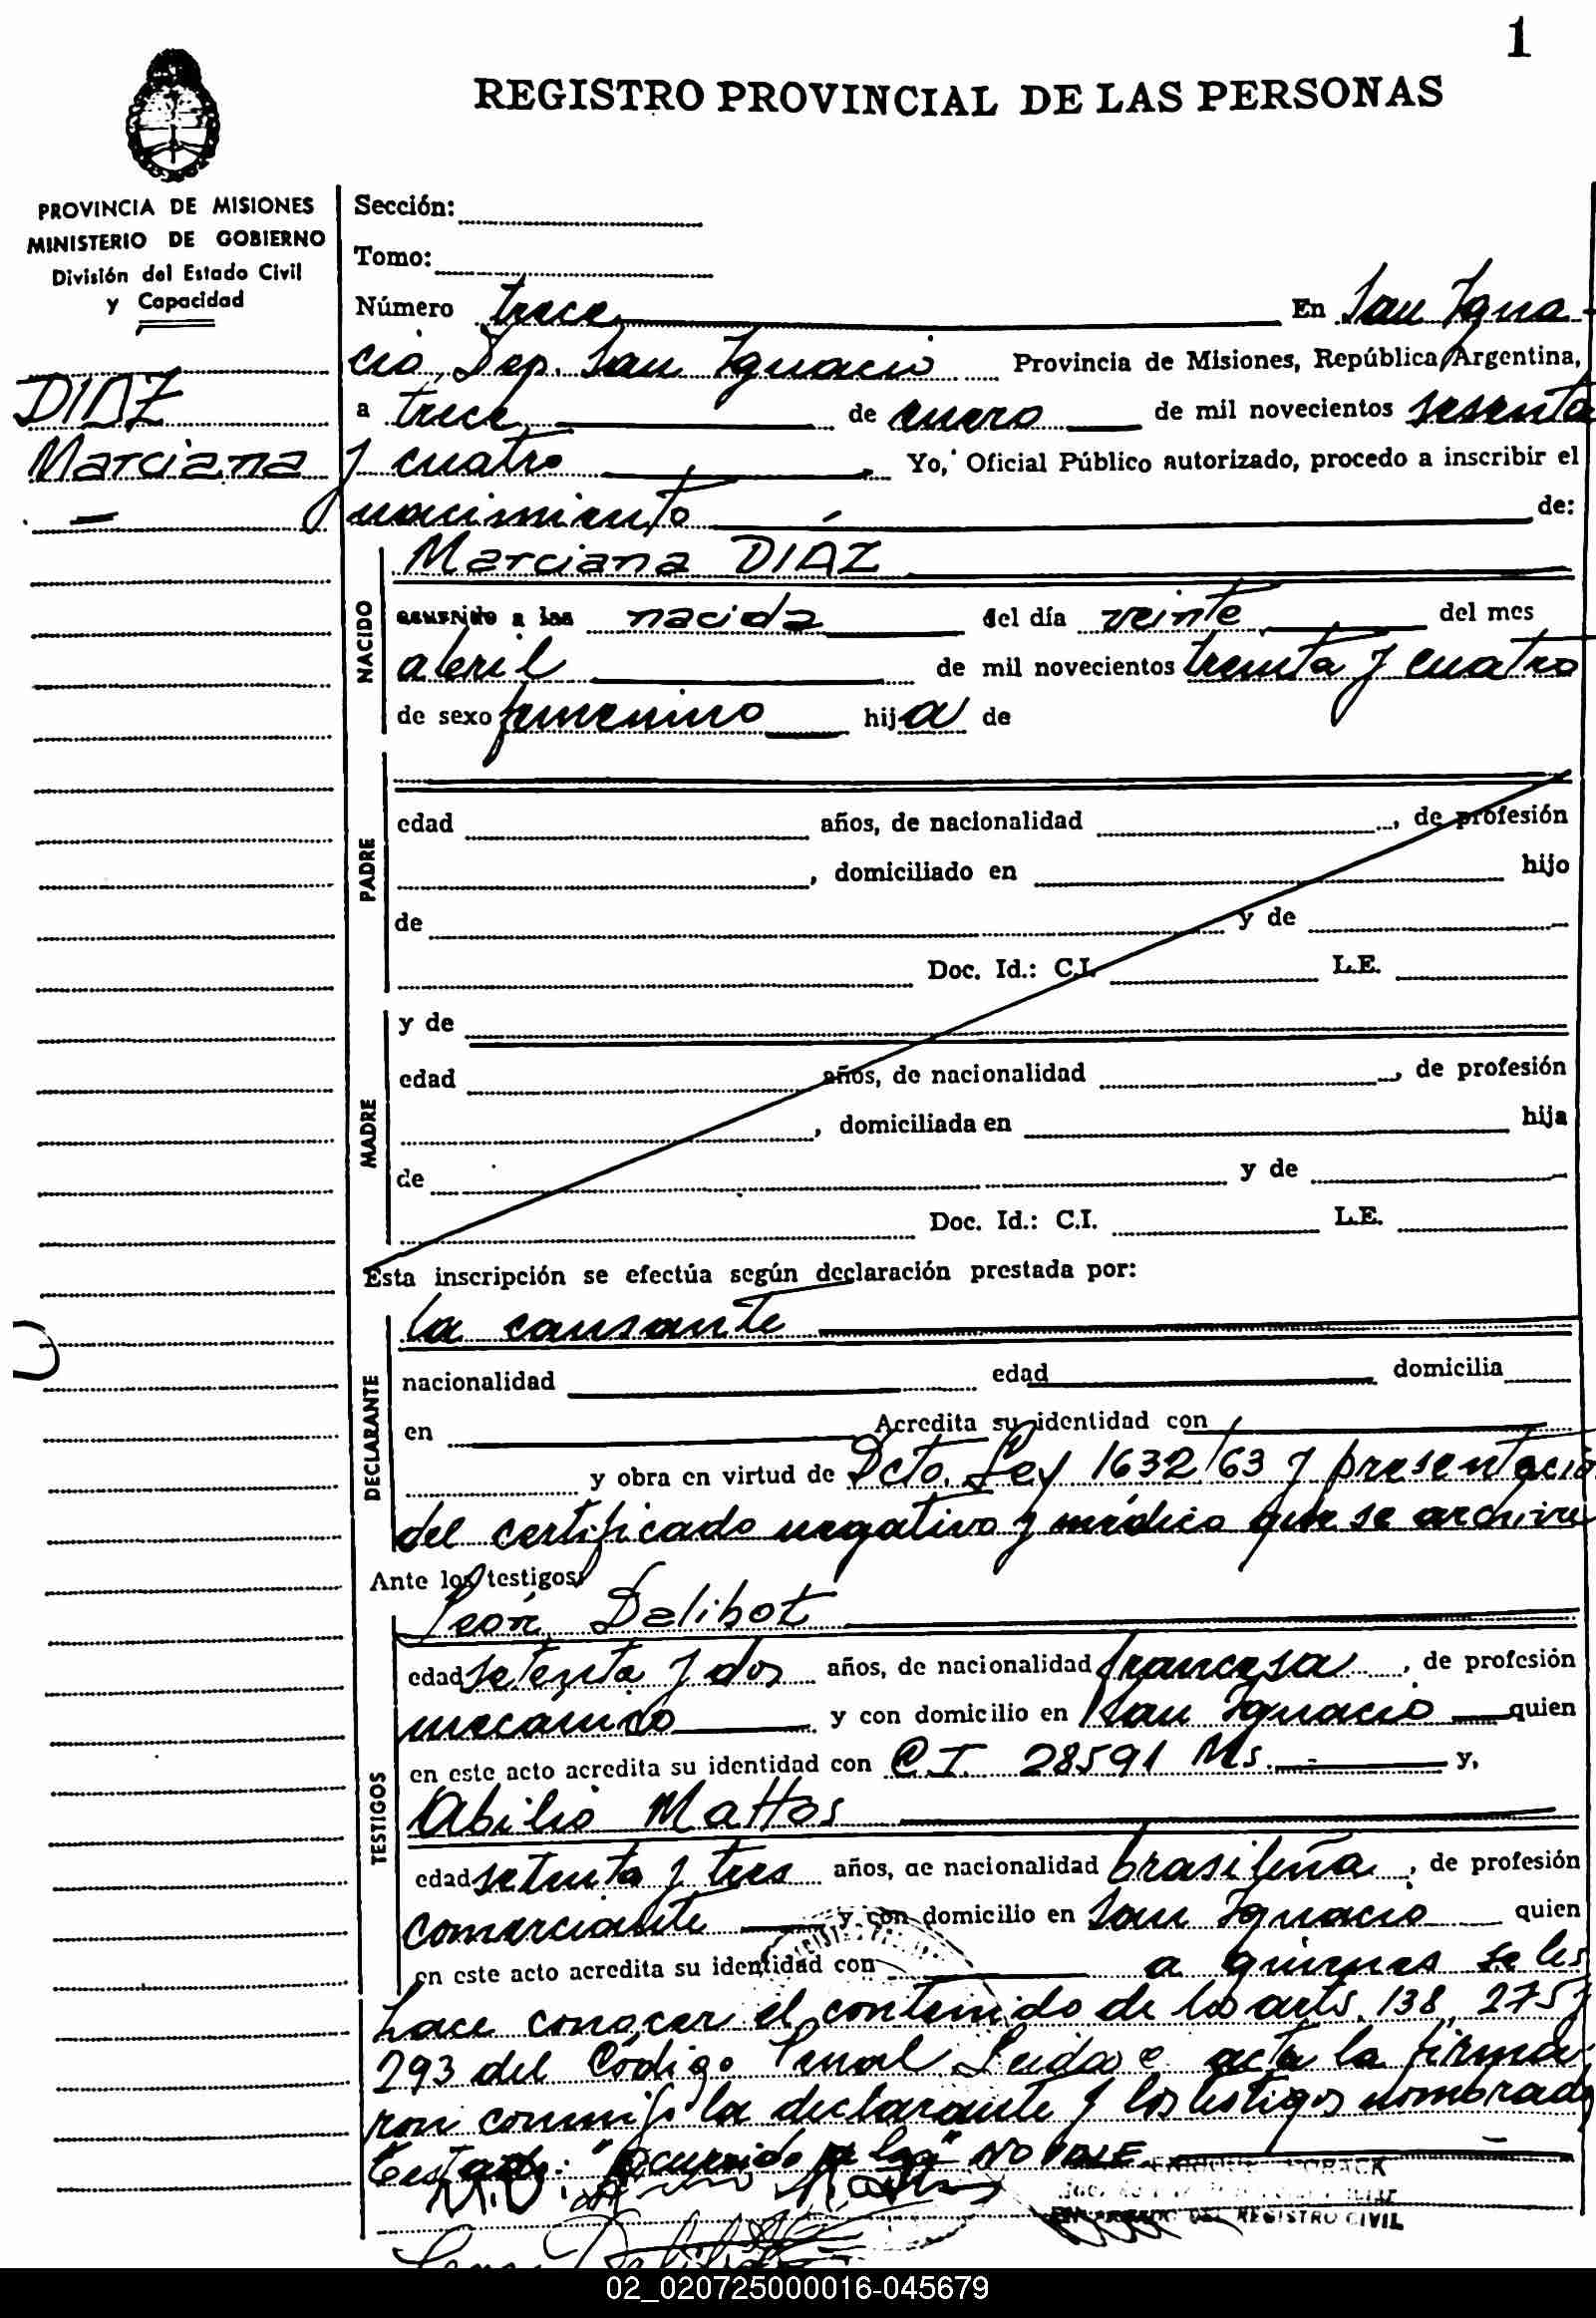 1
REGISTRO PROVINCIAL DE LAS PERSONAS
PROVINCIA DE MISIONES
MINISTERIO DE GOBIERNO
División del Estado Civil
y Capacidad
DIAZ
Marciana
Sección:
Tomo:
Número trece En San Igna-
cio, Dep. San Ignacio Provincia de Misiones, República Argentina,
a trece de enero de mil novecientos sesenta
y cuatro Yo, Oficial Público autorizado, procedo a inscribir el
nacimiento de:
NACIDO
Marciana DIAZ
ocurrido a las nacida del día veinte del mes
abril de mil novecientos treinta y cuatro
de sexo femenino hija de
PADRE
edad años, de nacionalidad , de profesión
, domiciliado en hijo
de y de
Doc. Id.: C.I. L.E.
MADRE
y de
edad años, de nacionalidad , de profesión
, domiciliada en hija
de y de
Doc. Id.: C.I. L.E.
Esta inscripción se efectúa según declaración prestada por:
DECLARANTE
la causante
nacionalidad edad domicilia
en Acredita su identidad con
y obra en virtud de Dcto. Ley 1632/63 y presentació
del certificado negativo y médico que se archiva
Ante los testigos:
TESTIGOS
León Delibot
edad setenta y dos años, de nacionalidad francesa, de profesión
mecánico y con domicilio en San Ignacio quien
en este acto acredita su identidad con C.I. 28591 Ms. y,
Abilio Mattos
edad setenta y tres años, de nacionalidad brasileña, de profesión
comerciante y con domicilio en San Ignacio quien
en este acto acredita su identidad con a quienes se les
hace conocer el contenido de los arts. 138, 275 y
293 del Código Penal. Leida e acta la firma
ron conmigo la declarante y los testigos nombrados
Testado: "ocurrido a las" NO VALE
ENCARGADO DEL REGISTRO CIVIL
02_020725000016-045679